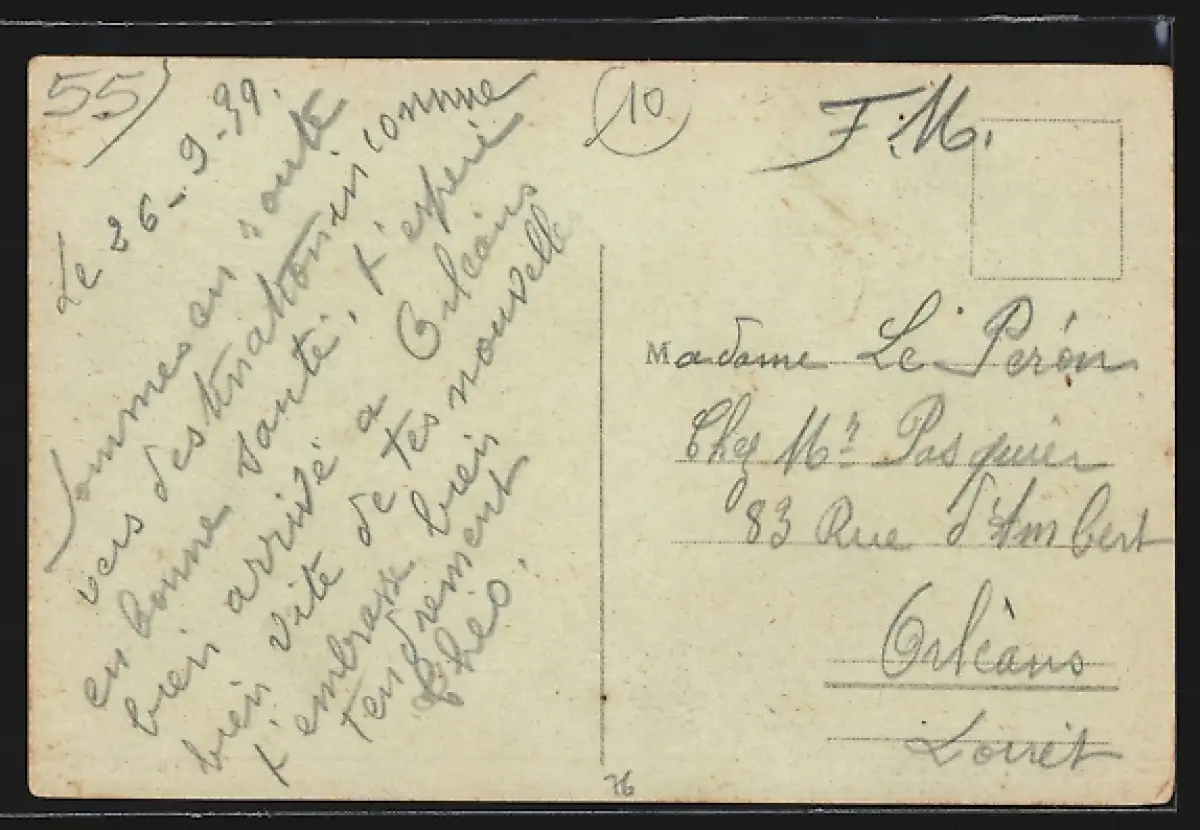 55
Le 26-9-39.
Sommes en route
vers destination inconnue
en bonne santé. t'espère
bien arrivée a Orléans
bien vite de tes nouvelles
t'embrasse bien
tendrement
Théo.
10
F.M.
Madame Le Péron
Chez Mr Pasquier
83 Rue d'Ambert
Orléans
Loiret
76